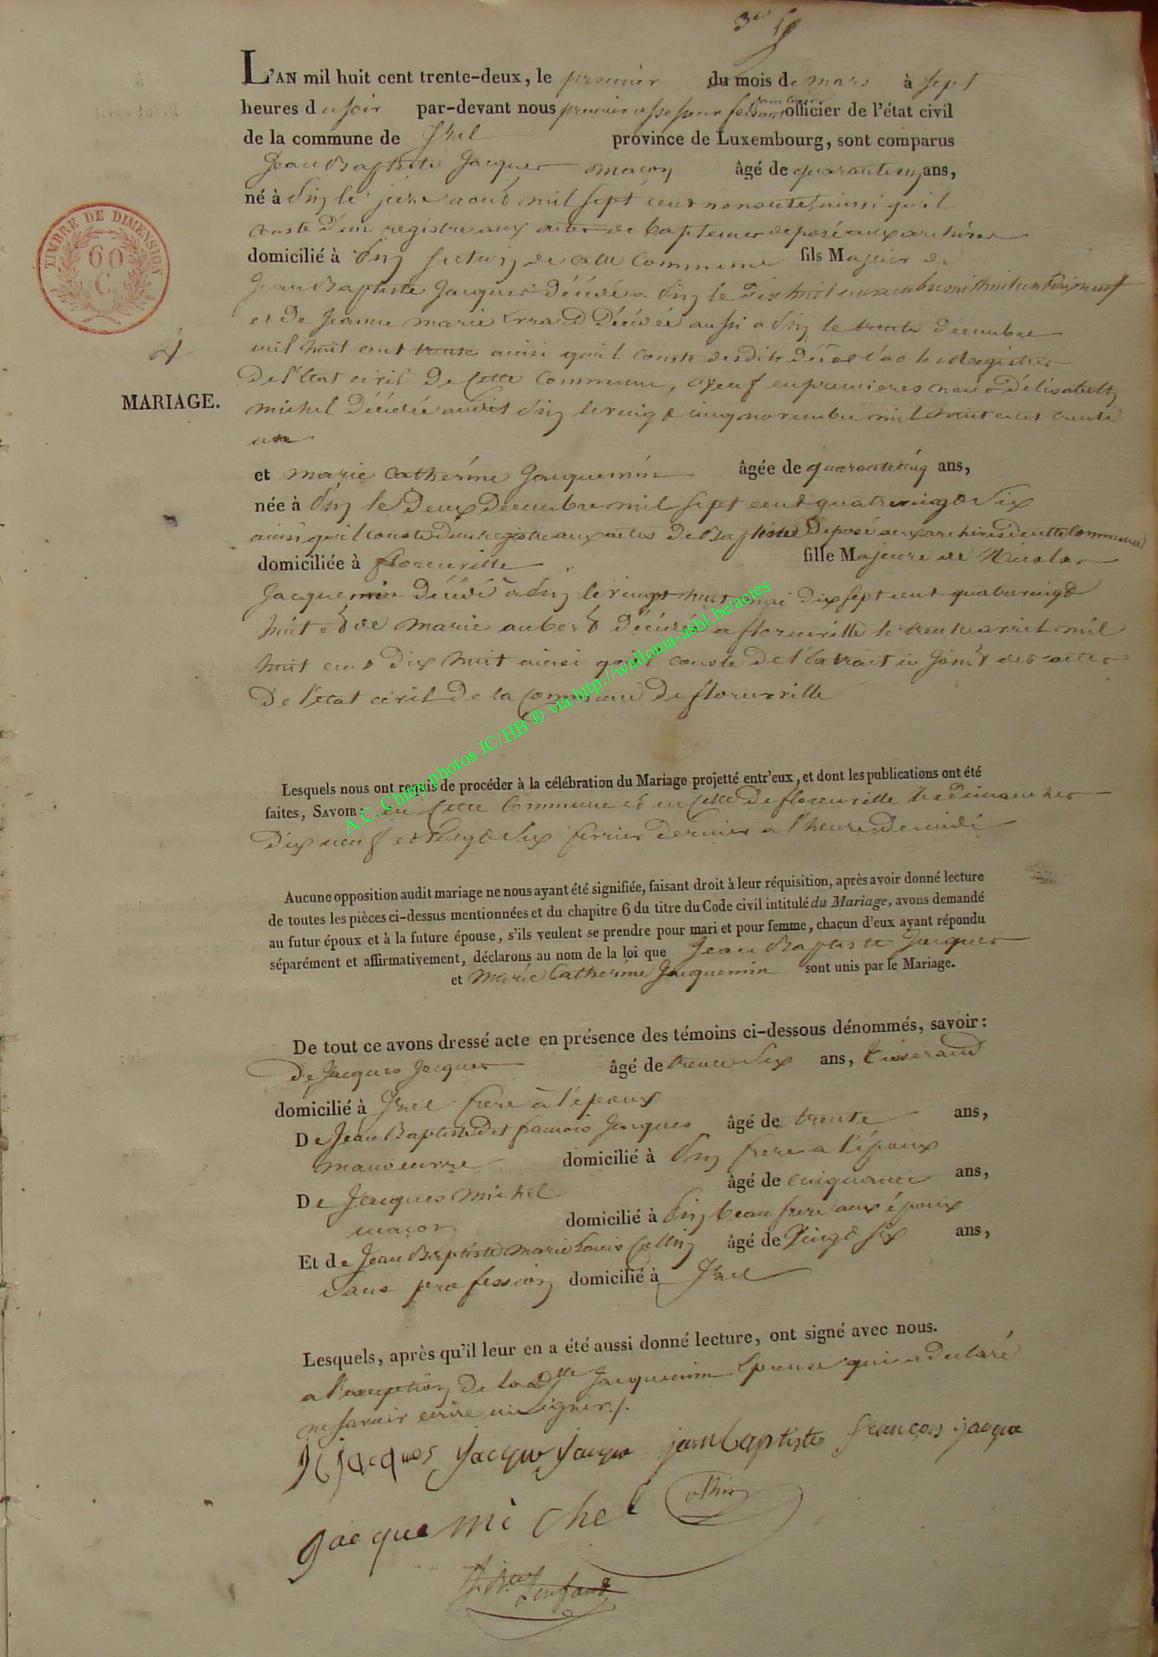 3e
L'AN mil huit cent trente-deux, le premier du mois de mars à sept
heures du soir par-devant nous premier assesseur faisant officier de l'état civil
de la commune de Izel province de Luxembourg, sont comparus
Jean Baptiste Jacques maçon âgé de quarante un ans,
né à Pin le seize août mil sept cent nonante, ainsi qu'il
conste d'un registre aux actes de baptemes deposé aux archives
domicilié à Pin section de cette commune fils Majeur de
Jean Baptiste Jacques décédé a Pin le dix huit mil huit cent dix neuf
et de Jeanne marie décédée aussi a Pin le trente decembre
mil huit cent treize ainsi qu'il conste desdits décès a la Registres
De l'Etat civil De Cette Commune, veuf en premieres noces d'élisabeth
MARIAGE.
michel Décédée audit Pin le vingt cinq novembre mil huit cent trente
une
et marie Catherine Jacquemin âgée de quarante cinq ans,
née à Pin le deux Decembre mil sept cent quatrevingt Six
ainsi qu'il conste du registre aux actes de Baptême Déposé aux archives de cette Commune
domiciliée à florenville fille Majeure de Nicolas
Jacquemin Décédé à Pin le vingt huit mai dix sept cent quatrevingt
huit et de marie aubert Décédée a florenville le trente avril mil
huit cent dix huit ainsi qu'il conste de l'Extrait ci joint des actes
De l'Etat civil De la Commune De florenville
Lesquels nous ont requis de procéder à la célébration du Mariage projetté entr'eux, et dont les publications ont été
faites, SAVOIR: en Cette Commune et en Celle De florenville les dimanches
Dix neuf et vingt Six fevrier dernier a l'heure De midi
Aucune opposition audit mariage ne nous ayant été signifiée, faisant droit à leur réquisition, après avoir donné lecture
de toutes les pièces ci-dessus mentionnées et du chapitre 6 du titre du Code civil intitulé du Mariage, avons demandé
au futur époux et à la future épouse, s'ils veulent se prendre pour mari et pour femme, chacun d'eux ayant répondu
séparément et affirmativement, déclarons au nom de la loi que Jean Baptiste Jacques
et Marie Catherine Jacquemin sont unis par le Mariage.
De tout ce avons dressé acte en présence des témoins ci-dessous dénommés, savoir:
De Jacques Jacques âgé de trente Six ans, tisserand
domicilié à Izel frere à l'époux
De Jean Baptiste dit francois Jacques âgé de trente ans,
manoeuvre domicilié à Pin frere a l'époux
De Jacques michel âgé de cinquante ans,
maçon domicilié à Pin beau frere aux époux
Et de Jean Baptiste Marie Louis Collin âgé de Vingt six ans,
Sans profession domicilié à Izel
Lesquels, après qu'il leur en a été aussi donné lecture, ont signé avec nous.
a l'exception de la dlle Jacquemin Epouse qui a declaré
ne savoir ecrire ni Signer./.
jacques Jacque Jacque jean baptiste francois jacque
Jacque michel
TIMBRE DE DIMENSION
60
C.
A.C. Chiny photos JC/HB @ via http://wallonia-asbl.be/actes